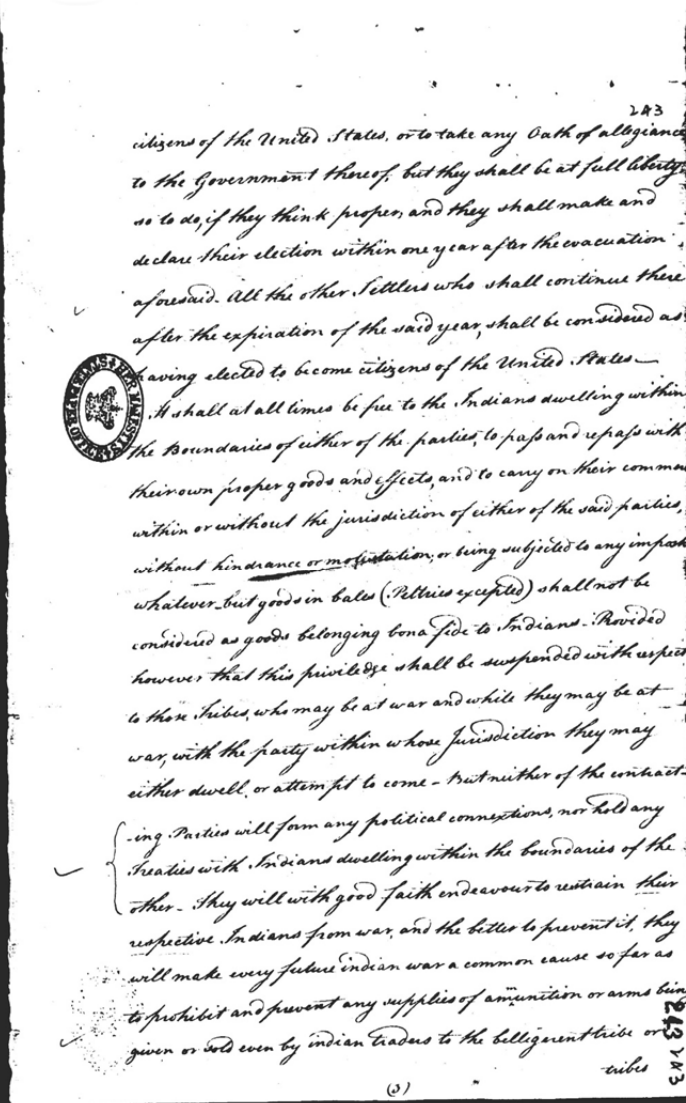 243
citizens of the United States, or to take any Oath of allegiance
to the Government thereof, but they shall be at full liberty
so to do, if they think proper, and they shall make and
declare their election within one year after the evacuation
aforesaid. All the other Settlers who shall continue there
after the expiration of the said year, shall be considered as
having elected to become citizens of the United States—
It shall at all times be free to the Indians dwelling within
the Boundaries of either of the parties, to pass and repass with
their own proper goods and effects, and to carry on their comme
within or without the jurisdiction of either of the said parties,
without hindrance or molestation, or being subjected to any impost
whatever but goods in bales (Peltries excepted) shall not be
considered as goods belonging bona fide to Indians - Provided
however that this priviledge shall be suspended with respect
to those Tribes, who may be at war and while they may be at
war, with the party within whose Jurisdiction they may
either dwell, or attempt to come - But neither of the contract-
-ing Parties will form any political connextions, nor hold any
Treaties with Indians dwelling within the boundaries of the
other - They will with good faith endeavour to restrain their
respective Indians from war, and the better to prevent it, they
will make every future indian war a common cause so far as
to prohibit and prevent any supplies of ammunition or arms bein
given or sold even by indian traders to the belligerent tribe or
tribes
(3)
243
243
HER MAJESTY'S
STATE PAPER OFFICE